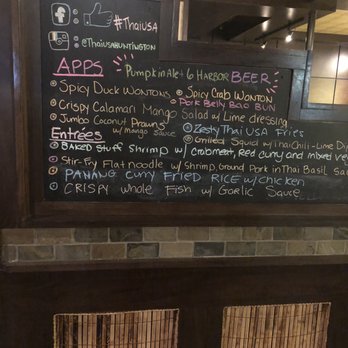 #ThaiUSA
@ThaiusaHuntington
APPS
Pumpkin Ale + 6 HARBOR BEER
Spicy Duck Wontons
Spicy Crab Wonton
Pork Belly Bao Bun
Crispy Calamari Mango Salad w/ Lime dressing
Jumbo Coconut Prawns
w/ mango sauce
Zesty Thai USA Fries
Entrées
Grilled Squid w/ Thai Chili-Lime
Baked Stuff Shrimp w/ Crabmeat, Red curry and mixed
Stir-Fry Flat noodle w/ Shrimp, Ground Pork in Thai Basil
PANANG CURRY FRIED RICE w/ Chicken
CRISPY Whole Fish w/ Garlic Sauce